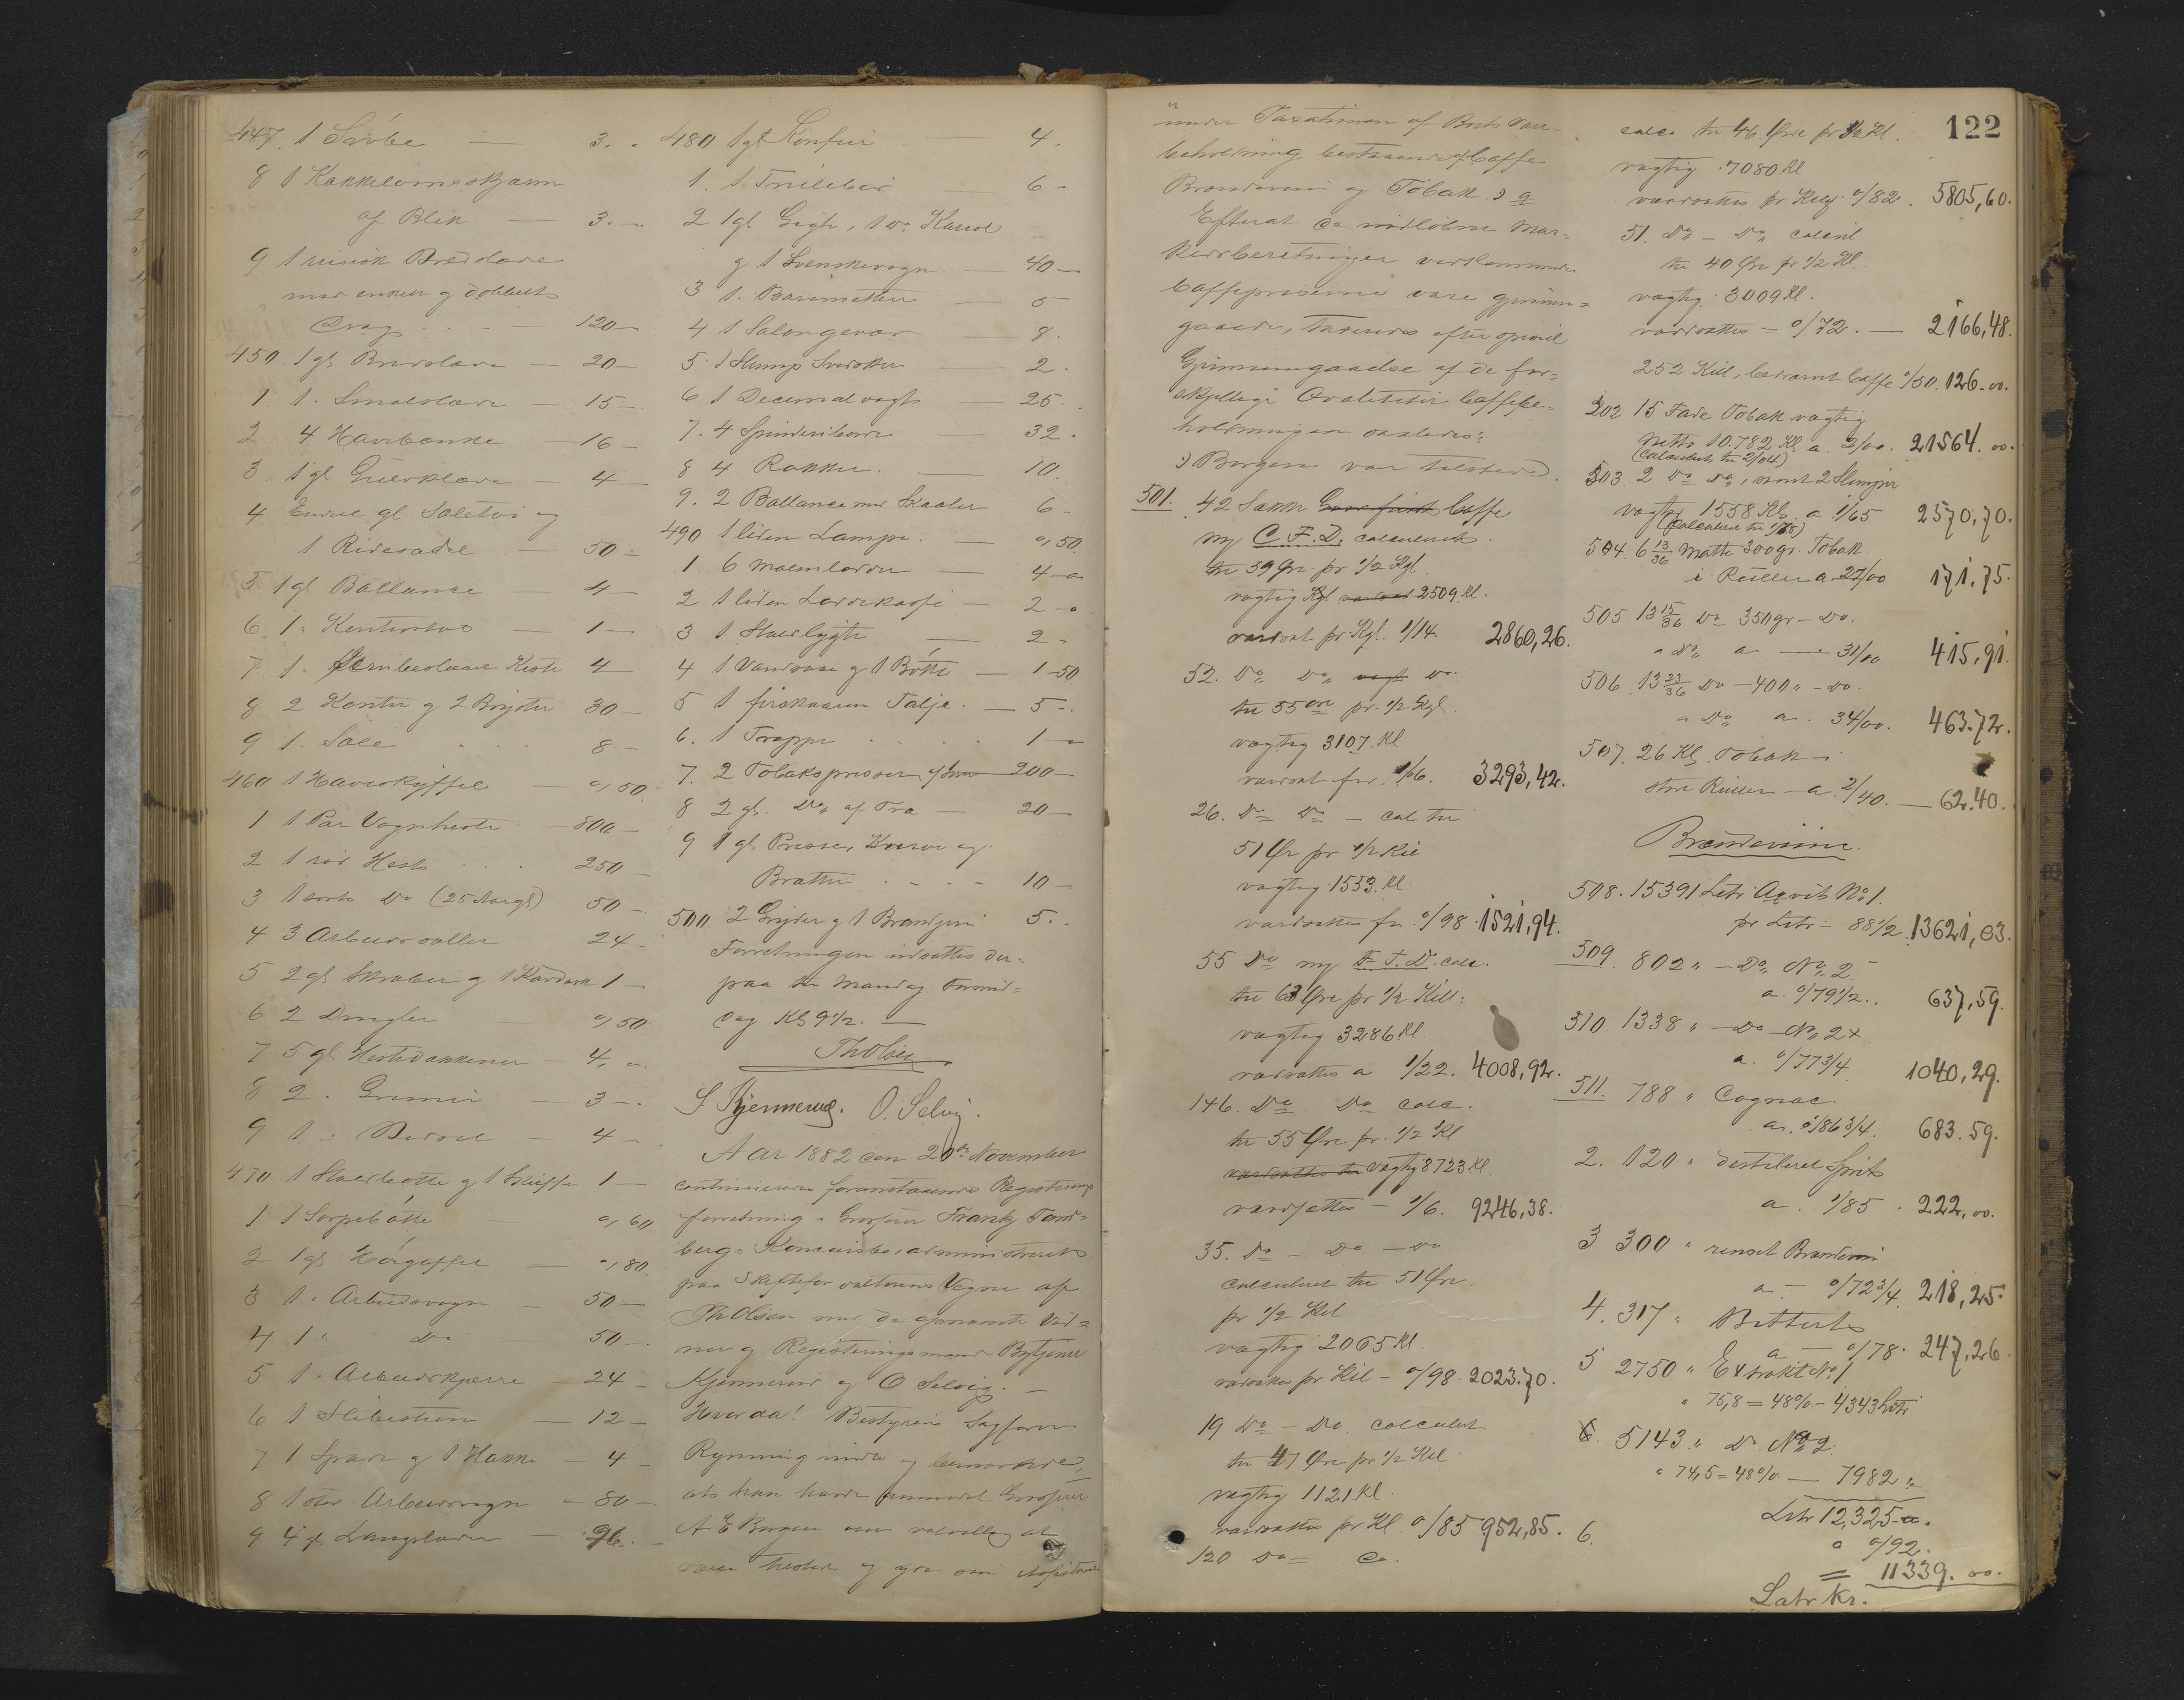 447. 1 Svøbe — 3. „
8 1 Kakkelovnsskjærm
af Blik — 3. „
9 1 russisk Bredslæde
med enkelt og dobbelt
Drag — 120 —
450. 1 gl Bredslæde — 20 —
1. 1. Smalslæde — 15 —
2 4 Havebænke — 16 —
3 1 gl — 4 —
4 Endel gl Sæletøi og
1 Ridesadel — 50 —
5. 1 gl Ballance — 4 —
6 1 „ — 1 —
7. 1. Jernbeslaaet Kiste 4 —
8 2 Kanter g 2 30 —
9 1. Sæle . . . 8 —
460 1 Haveskyffel — 0,50.
1 1 Par Vognheste — 800 —
2 1 rød Hest . . . 250 —
3 1 sort Do (25 Aargl) 50 —
4 3 24 —
5 2 gl Skraber g 1 Kardæsk 1 —
6 2 — 0,50
7 5 gl Hestedækkener — 4, „
8 2 . Grimer — 3 —.
9 1 „ — 4 —
470 1 g 1 1 —
1 1 Sørpebøtte — 0,60
2 1 gl Høgaffel — 0,80.
3 1. Arbeidsvogn — 50 —
4 1 „ Do — 50 —
5 1. Arbeidskjærre — 24 —
6 1 Slibesteen — 12 —
7 1 Spade g 1 Hakke — 4 —
8 1 stor Arbeidsvogn — 80 —
9 4 gl Langslæder — 96 —
480 1 gl Komfur — 4.
1. 1 Trillebør — 6 —
2 1 gl Gigh, 1 Do. Karriol
g 1 Svenskevogn — 40 —
3 1. Barometter — 5
4 1 Salongevær — 8.
5. 1 Slump Svedsker — 2.
6 1 Decimalvægt — 25.
7. 4 Spinderiborde — 32.
8 4 Rokker. — 10.
9. 2 Ballancer med Skaaler 6 „
490 1 liden Lampe. — 0,50
1. 6 Malmlodder — 4 — „
2 1 liden Loddekasse — 2 — „
3 1 Staldlygte — 2 „
4 1 Vandsaa g 1 Bøtte — 1-50
5 1 firskaaren Talje. — 5 „
6. 1 Trappe . . . . 1 — „
7. 2 Tobakspresser, af Jern 200 —
8 2 gl. Do „ af Træ — 20 —
9 1 gl Presse, Kurve og
Brætter . - - - 10 —
500 2 Gryder g 1 Brændejern 5 „
Forretningen udsattes der=
paa til Mandag Formid=
dag Kl 9 1/2. —
ThOlsen
S Kjennerud. O. Selvig.
Aar 1882 den 20de November
continueredes foranstaaende Registrerings
forretning i Grosserer Frantz Tand=
bergs Konkursbo, administreret
paa Skifteforvalterens Vegne af
ThOlsen med de opnævnte Vid=
ner og Registreringsmænd Bytjener
Kjennerud og O Selvig. —
Hvorda! Bestyreren Sagfører
Rynning mødte og bemærkede,
at han havde anmodet Grosserer
A E Borgen om velvilligen at
være tilstede og yde sin Assistance
122
under Taxationen af Boets Vare-
beholdning bestaaende af Caffe
Brændeviin og Tobak. )
Efterat de indløbne Mar=
kedsberetninger vedkommende
Caffepriserne vare gjennem=
gaaede, taxeredes efter speciel
Gjennemgaaelse af de for=
skjellige Qvaliteter Caffebe=
holdningen saaledes:
) Borgen var tilstede.
501. 42 Sække Caffe
mrj C. F. D. calculeret
til 59 Øre pr 1/2 Kgl
vægtig Kgl 2509 Kl.
værdsat pr Kgl. 1/14. 2860,26.
52. Do „ Do „ Do.
til 55 Øre pr. 1/2 Kgl.
vægtig 3107. Kl
værdsat for. 1/06. 3293,42.
26. Do Do — cal til
51 Øre pr 1/2 Kil
vægtig 1553. Kl.
værdsættes for. 0/98. 1521,94.
55 Do mrj F. T. D. calc.
til 63 Øre pr 1/2 Kill:
vægtig 3286 Kl
værdsættes a 1/22. 4008,92.
146. Do Do calc.
til 55 Øre pr. 1/2 Kl
værdsættes til vægtig 8723 Kl.
værdsættes — 1/6. 9246,38.
35. Do — Do — Do
calculeret til 51 Øre.
pr 1/2 Kil
vægtig 2065 Kl.
værdsættes pr Kil — 0/98. 2023.70.
19 Do — Do. calculeret
til 47 Øre pr 1/2 Kil
vægtig 1121 Kl.
værdsættes pr Kl 0/85 952,85.
120 Do =
calc. til 46. Øre pr 1/2 Kl.
vægtig 7080 Kl
værdsættes pr Kilg. 0/82. 5805,60.
51. Do — Do „ calcul
til 40 Øre pr 1/2 Kl
vægtig 3009 Kl.
værdsættes — 0/72. — 2166,48.
252 Kill, Caffe 0/50. 126. oo.
502 15 Fade Tobak vægtig
Netto 10.782 Kl a. 2/00. 21564. oo.
(calculeret til 2/04)
503. 2 Do Do, samt 2 Slumper
vægtig 1558 Kl. a. 1/65 2570,70.
(calculeret til 1/65)
504. 6 13/36 Matte 300gr. Tobak
i Ruller a 27/00 171,75.
505 13 15/36 Do 350gr — Do.
„ Do „ a — 31/00 415,91.
506. 13 23/36 Do — 400 „ — Do.
„ Do a. 34/00. 463.72.
507. 26 Kl. Tobak i
store Ruller — a. 2/40. — 62.40.
Brændeviine.
508. 15391 Litr Aqvit No 1.
pr Litr — 88 1/2. 13621,03.
509. 802 „ — Do, No 2
a. 0/79 1/2. 637,59.
510. 1338 „ — Do — No 2 x
a. 0/77 3/4 1040,29.
511. 788 „ Cognac.
a. 0/86 3/4. 683.59.
2. 120 „ destileret Sprit
a. 1/85. 222, oo.
3 300 „ renset Brændeviin
a — 0/72 3/4. 218,25.
4. 317 „ Bitterts
a — 0/78. 247,26.
5 2750 „ Extrakt No 1
„ 75,8 = 48% — 4343 Litr
6. 5143 „ Do. No 2.
„ 74,5 = 48% — 7982 „
Litr 12,325 „
a 0/92.
6. = 11339. oo.
Latr Kr.